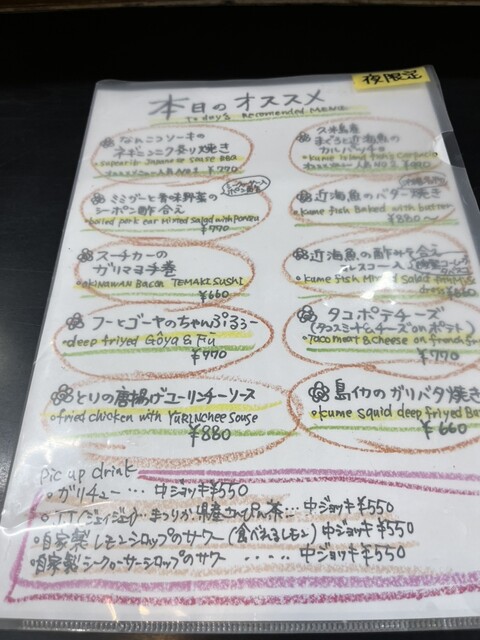 夜限定
本日のオススメ
Today's Recomended MENU
なんこつソーキの
ネギニンニク炙り焼き
¥770
久米島産
まぐろと近海魚の
カルパッチョ
ミミガーと香味野菜の
シーポン酢合え
boiled pork ear mixed salad with Ponzu
¥770
近海魚のバター焼き
kume fish Baked with butter
¥880~
スーチカーの
ガリマヨ手巻
OKINAWAN Bacon TEMAKI SUSHI
¥660
近海魚の酢みそ合え
kume fish Mixed Salad
フーとゴーヤのちゃんぷるぅー
deep friyed Goya & Fu
¥770
タコポテチーズ
(タコスミート&チーズonポテト)
Taco meat & cheese on french
¥770
とりの唐揚げユーリンチーソース
fried chicken with YURINchee souse
¥880
島イカのガリバタ焼き
kume squid deep friyed
¥660
pic up drink
ガリチュー… 中ジョッキ¥550
中ジョッキ¥550
自家製レモンシロップのサワー(食べれるレモン)中ジョッキ¥550
自家製シークヮーサーシロップのサワー … 中ジョッキ¥550